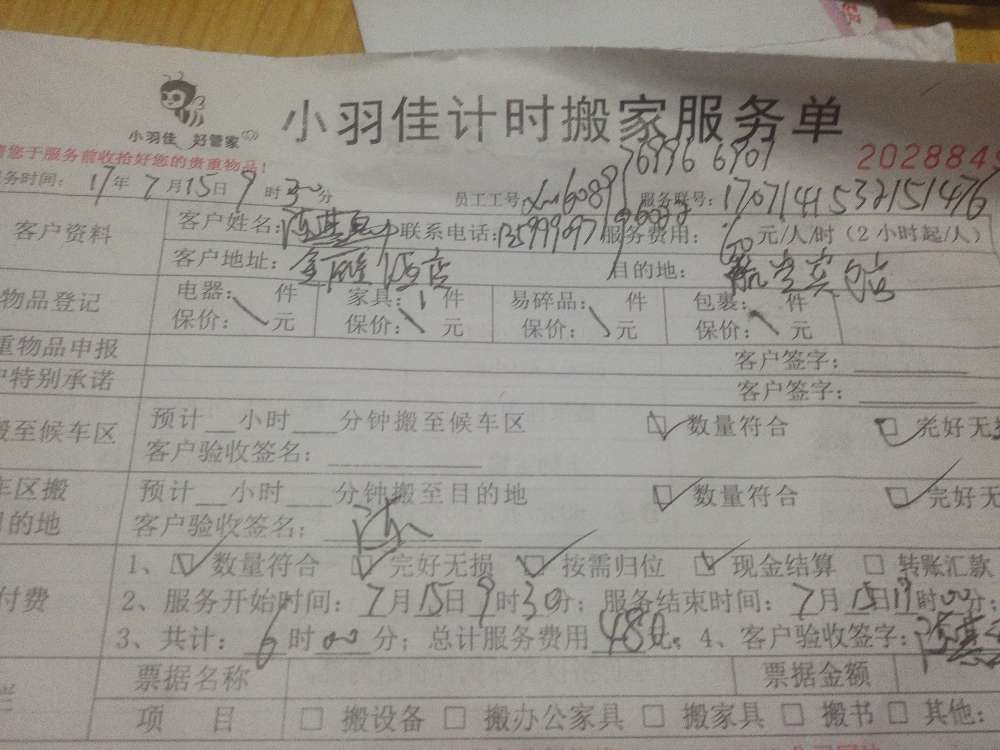 小羽佳 好管家
小羽佳计时搬家服务单
请您于服务前收拾好您的贵重物品！
76996 6901
2028849
服务时间：17年7月15日9时30分 员工工号： 服务联号：1707141532151476
客户资料 客户姓名： 联系电话： 服务费用：60元/人/时（2小时起/人）
客户地址： 酒店 目的地：航空宾馆
物品登记 电器： 件 家具：1件 易碎品： 件 包裹： 件
保价： 元 保价： 元 保价： 元 保价： 元
重物品申报 客户签字：
户特别承诺 客户签字：
搬至候车区 预计__小时___分钟搬至候车区 数量符合 完好无损
客户验收签名：
车区搬 预计__小时___分钟搬至目的地 数量符合 完好无
目的地 客户验收签名：
付费 1、 数量符合 完好无损 按需归位 现金结算 转账汇款
2、服务开始时间：7月15日9时30分；服务结束时间：7月15日 时00分；
3、共计：6时00分；总计服务费用480元。4、客户验收签字：
票据名称 票据金额
项 目 搬设备 搬办公家具 搬家具 搬书 其他：